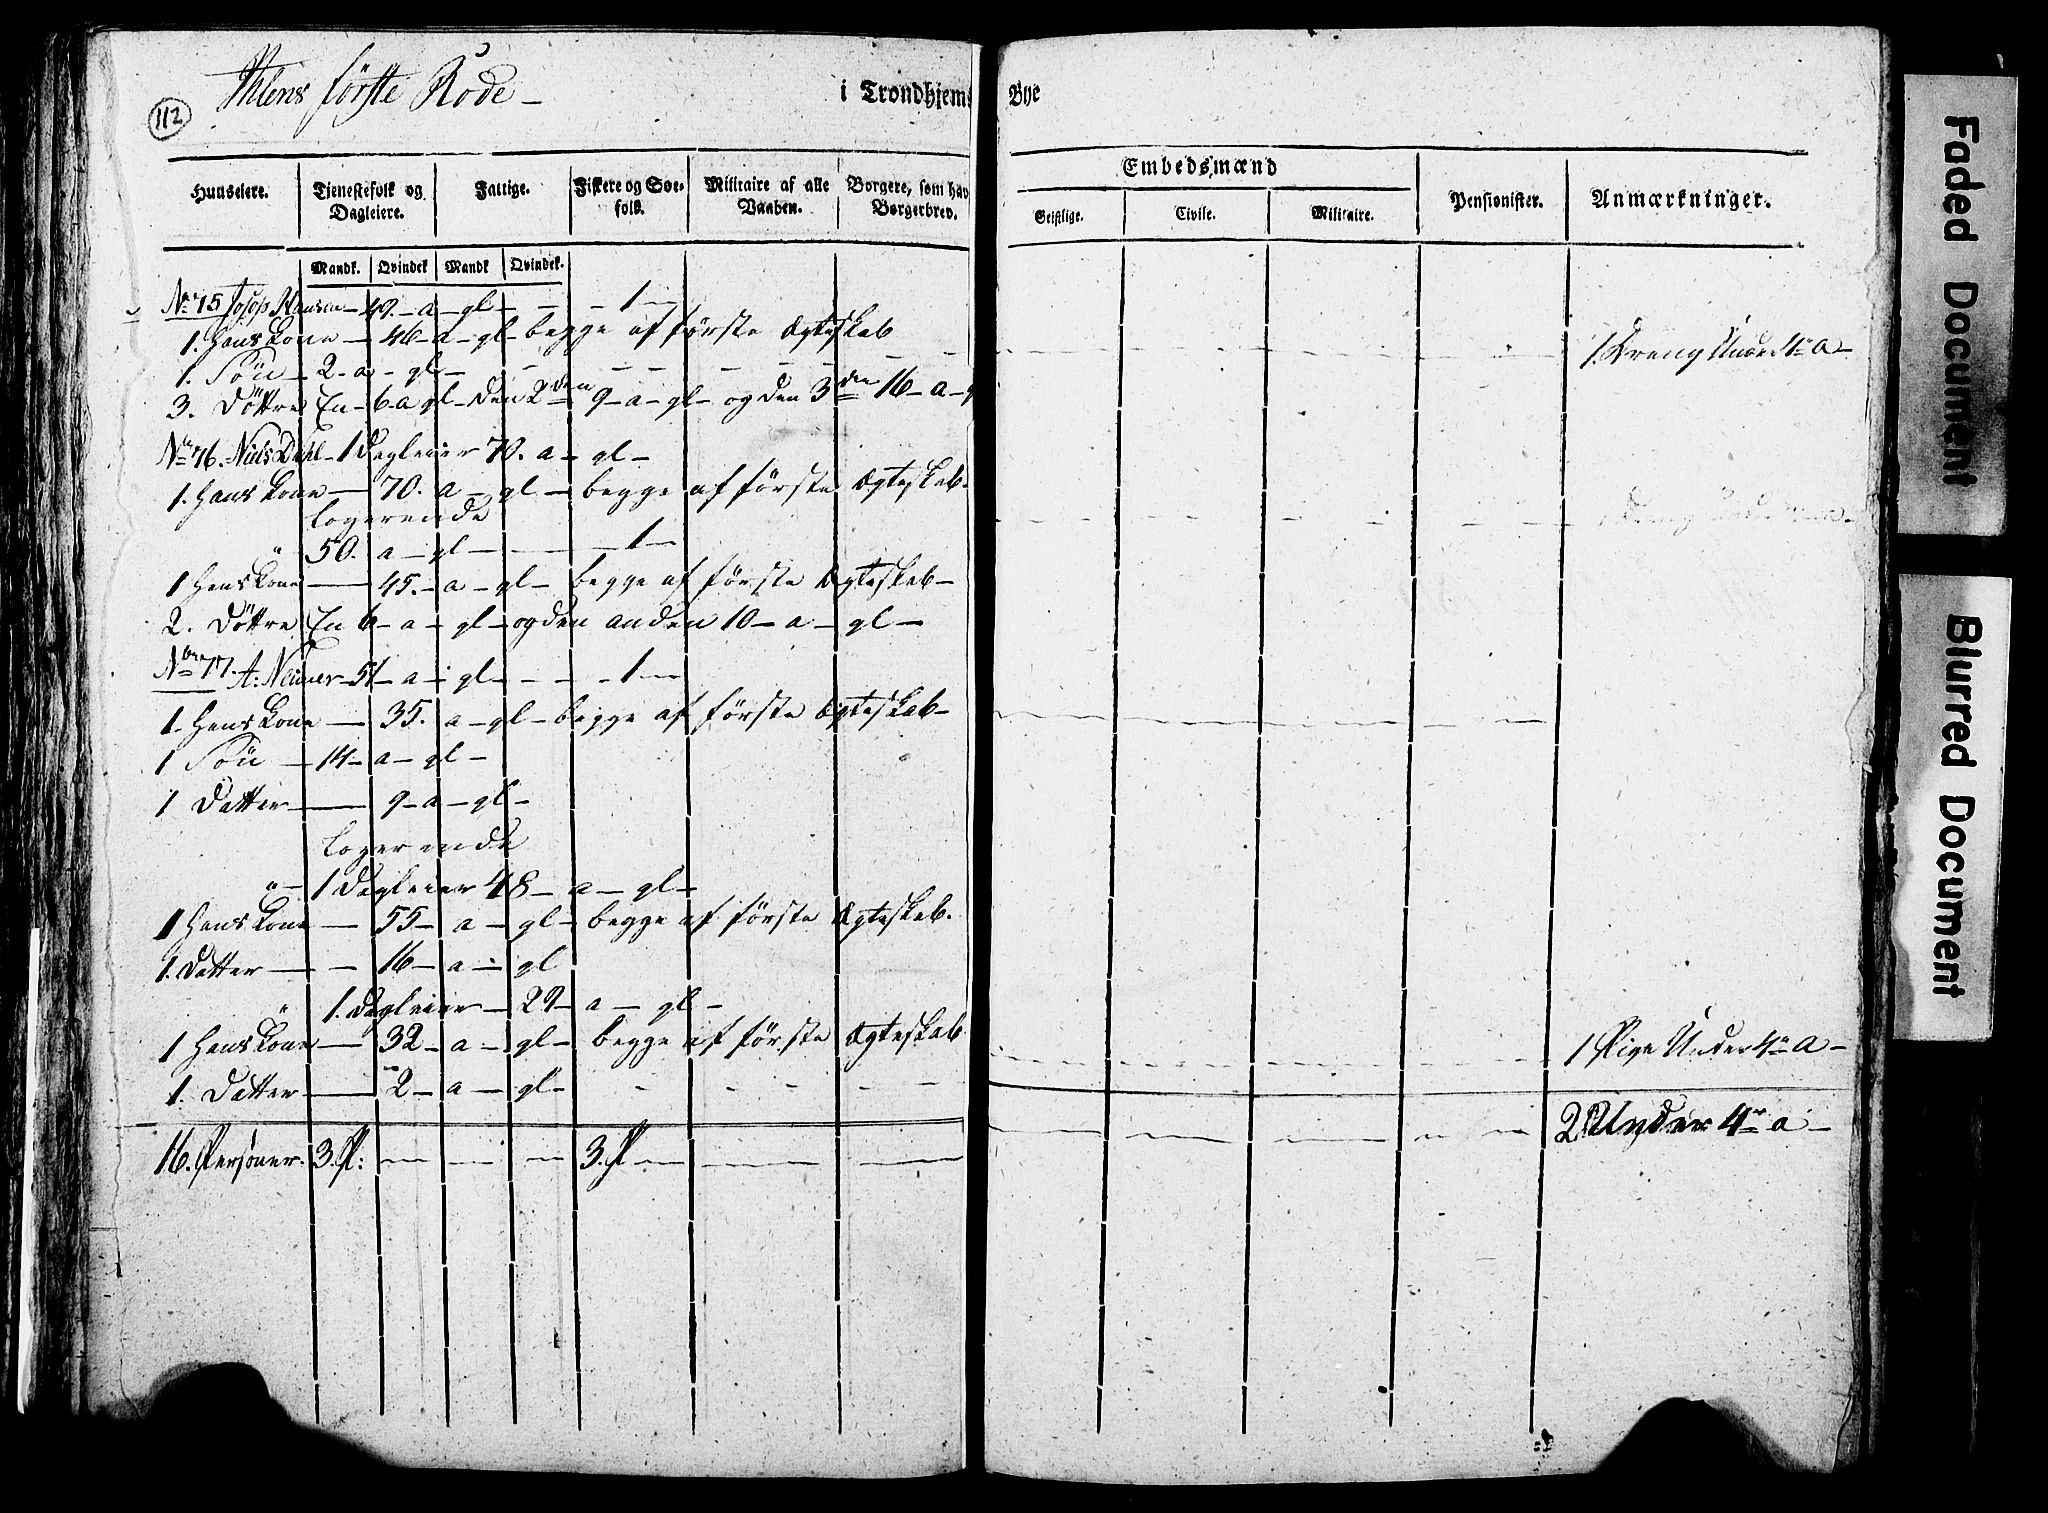 112
Ihlens förste Rode –
i Trondhjems Bye
Huuseiere. Tjenestefolk og Dagleiere. Fattige. Fiskere og Søefolk. Militaire af alle Vaaben. Borgere, som hav Borgerbrev. Embedsmænd Pensionister. Anmærkninger.
Geistlige. Civile. Militaire.
Mandk. Qvindek Mandk Qvindek.
No 75 Josep Hansen – 49. – a – gl – – – 1 –
1. Hans Kone – 46 – a – gl – begge af förste Ægteskab
1. Dreng Under 4re a –
1. Sön – 2 – a – gl –
3. Döttre En – 6 – a gl – den 2den 9 – a – gl – og den 3die 16 – a – g
No 76. Niels Dahl – 1 Dagleier 70. a – gl –
1. Hans Kone – 70. a – gl – begge af förste Ægteskab –
Logerende
" 50. a – gl – – – 1 –
1 Hans Kone – 45. – a – gl – begge af förste Ægteskab –
2. Döttre En 6 – a – gl – og den anden 10 – a – gl –
No 77. A: Neimer – 51 – a – gl – – – 1 –
1. Hans Kone – 35. a – gl – begge af förste Ægteskab –
1 Sön – 14 – a – gl –
1 Datter – 9 – a – gl –
Logerende
" – 1 Dagleier 48 – a – gl –
1 Hans Kone – 55 – a – gl – begge af förste Ægteskab.
1. Datter – – 16 – a – gl
" 1. Dagleier – 29 – a – gl –
1 Hans Kone – 32 – a – gl – begge af förste Ægteskab
1 Pige Under 4re a –
1. Datter – 2 – a – gl –
2 Under 4re a –
16. Persöner. 3. P: – – – 3. P – – –
Faded Document
Blurred Document